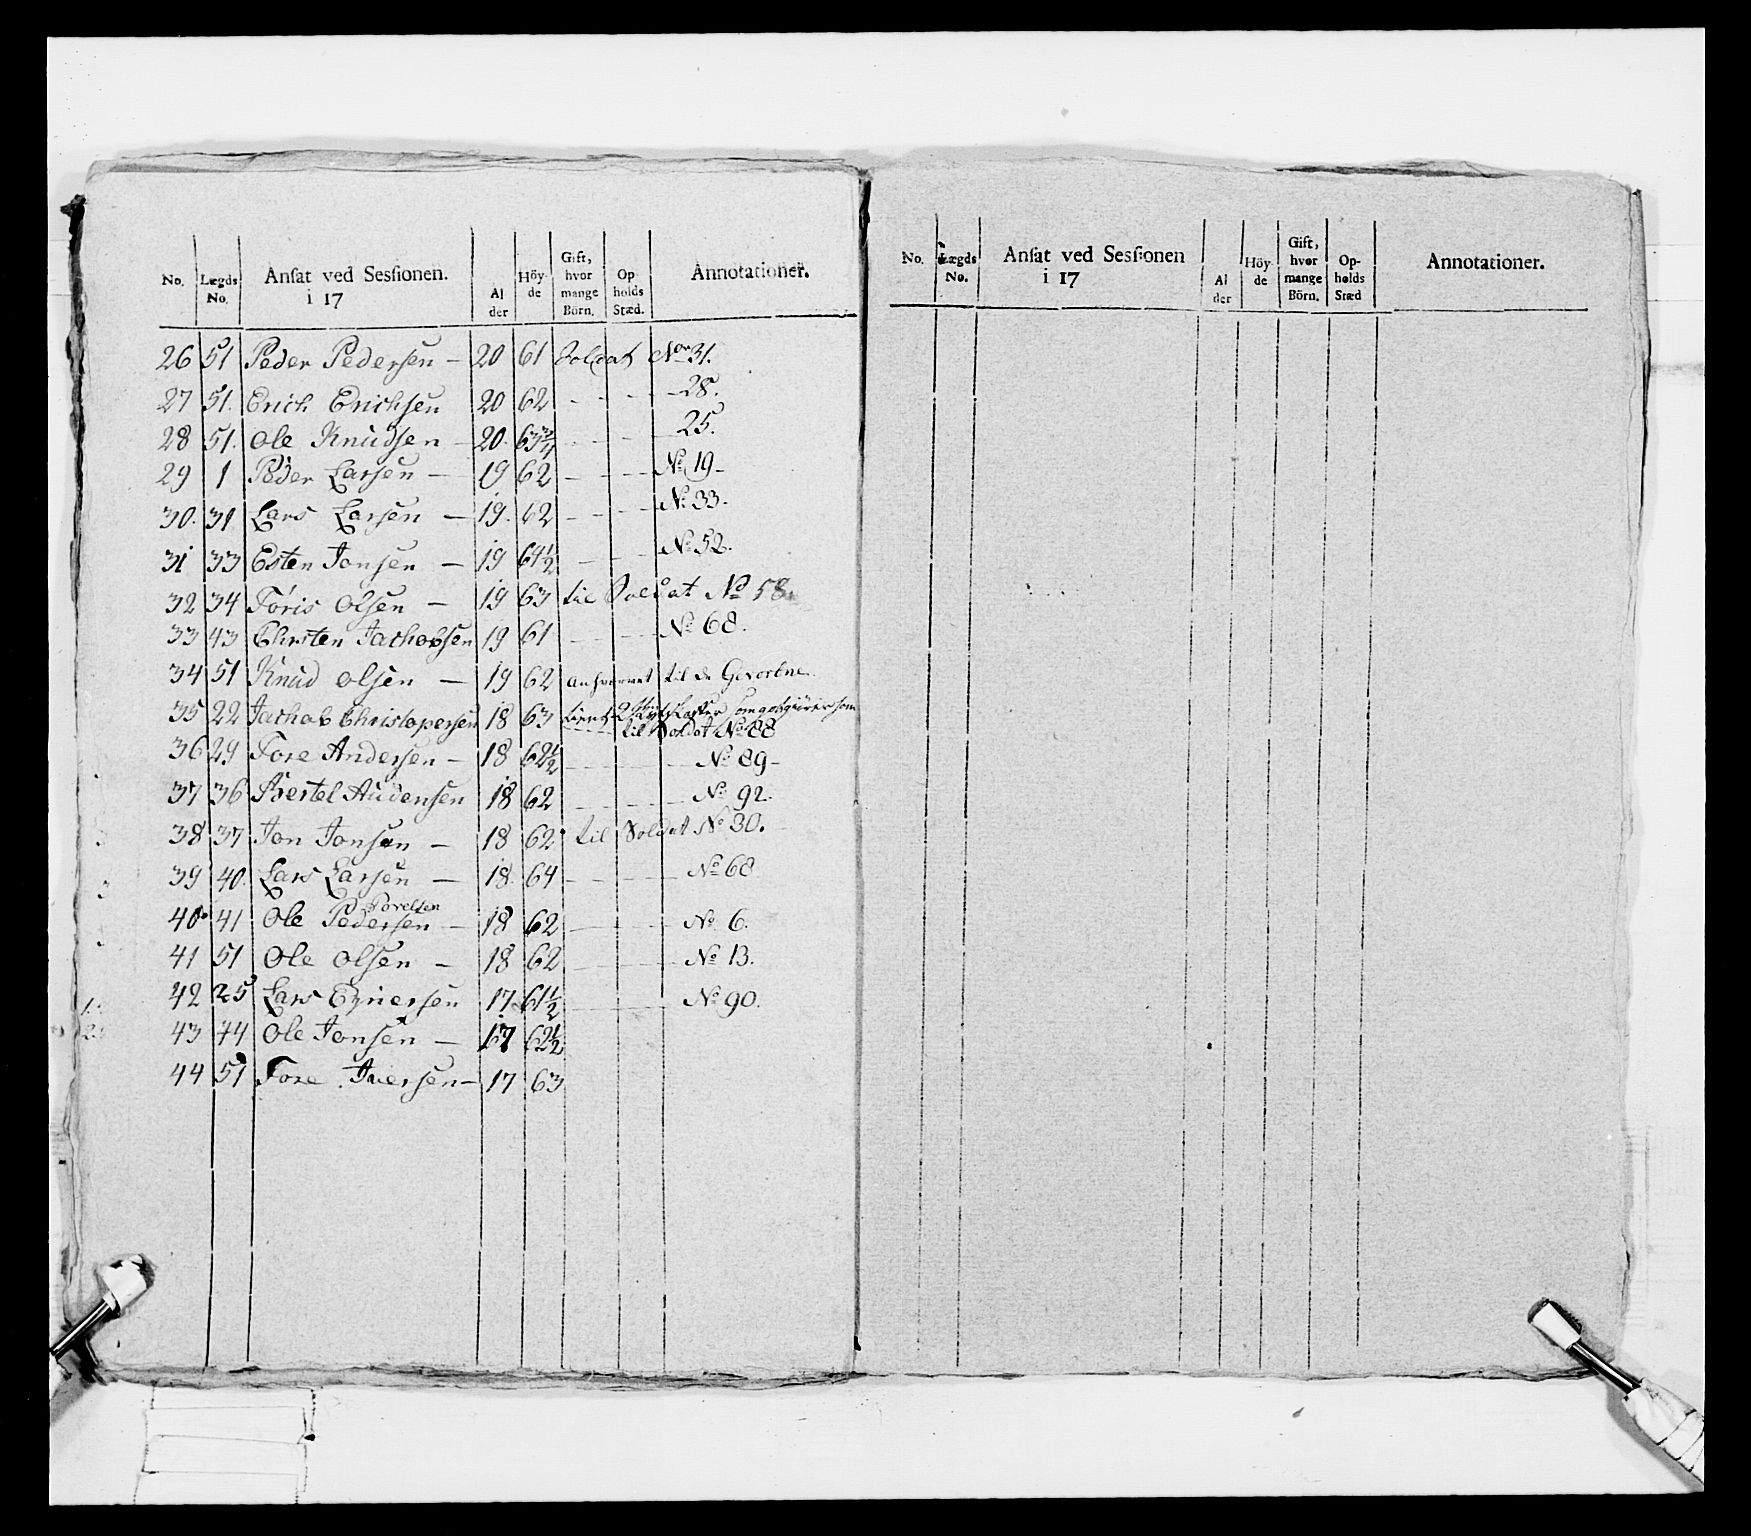 No. Lægds No. Ansat ved Sessionen. i 17 Al der Höy- de Gift, hvor mange Börn. Op holds Stæd. Annotationer.
26 51 Peder Pedersen — 20 61 Soldat No 31.
27 51. Erich Erichsen 20 62 - - - 28.
28 51. Ole Knudsen - 20. 63 3/4 - - - 25.
29 1 Peder Larsen — 19 62 - - - No 19-
30. 31 Lars Larsen — 19. 62 - - - No 33.
31 33 Esten Jonsen — 19 64 1/2 - - - No 52.
32 34 Töris Olsen — 19 63 til Soldat No 58.
33 43 Christen Jachobsen 19 61 - - - No 68.
34 51 Knud Olsen — 19 62 til de Gevorbne
35 22 Jachob Christopersen 18 63
til Soldat No 88
36 29 Tore Andersen — 18 62 1/2 - - - No 89-
37 36 Bertel Audensen 18 62 - - - No 92.
38 37 Jon Jonsen — 18 62 til Soldat No 30.
39 40. Lars Larsen — 18. 64 - - - No 68
Povelsen
40. 41 Ole Pedersen — 18 62 - - - No 6.
41 51 Ole Olsen — 18 62 - - - No 13.
42 25 Lars Eynersen 17. 61 1/2 - - - No 90.
43 44 Ole Jonsen — 17 62 1/2
44 51 Tore Iversen — 17 63
No. Lægds No. Ansat ved Sessionen i 17 Al der Höy- de Gift, hvor mange Börn. Op- holds Stæd Annotationer.